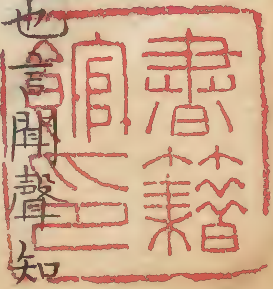 書籍
館印
也言聞聲知